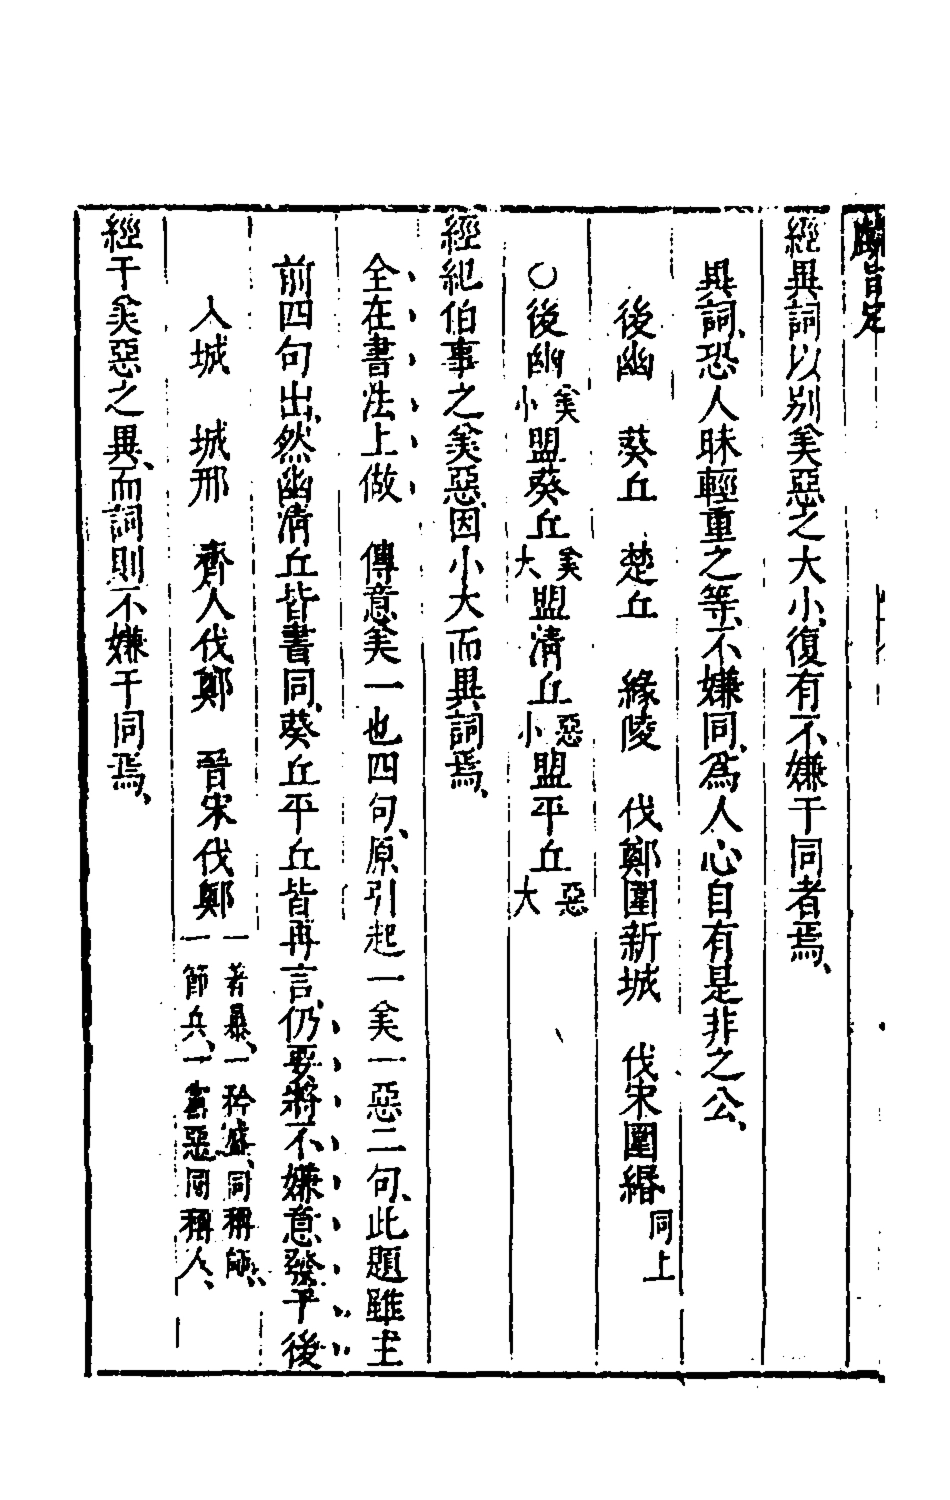 經異詞以別美惡之大小、復有不嫌于同者焉、
異詞、恐人昧輕重之等、不嫌同、爲人心自有是非之公、
後幽　葵丘　楚丘　緣陵　伐鄭圍新城　伐宋圍緡同上
○後幽美小盟葵丘美大盟清丘惡小盟平丘惡大
經紀伯事之美惡、因小大而異詞焉、
全在書法上做　傳意美一也四句、原引起一美一惡二句、此題雖主
前四句出、然幽清丘皆書同、葵丘平丘皆再言、仍要將不嫌意發于後
入城　城邢　齊人伐鄭　晉宋伐鄭一著暴、一矜盛、同稱師、一節兵、一書惡同稱人、
經于美惡之異、而詞則不嫌于同焉、